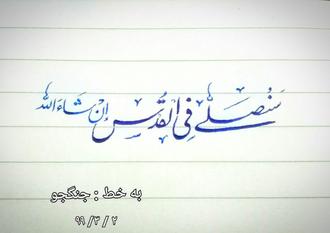 سَنُصَلّے فِي القُدْسِ إنْ شَاءَ اللّٰه
به خط : جنگجو
۹۹ / ۳ / ۲